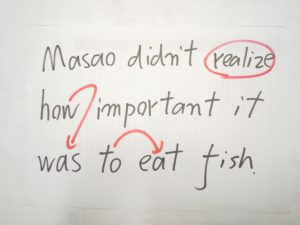 Masao didn't realize
how important it
was to eat fish.